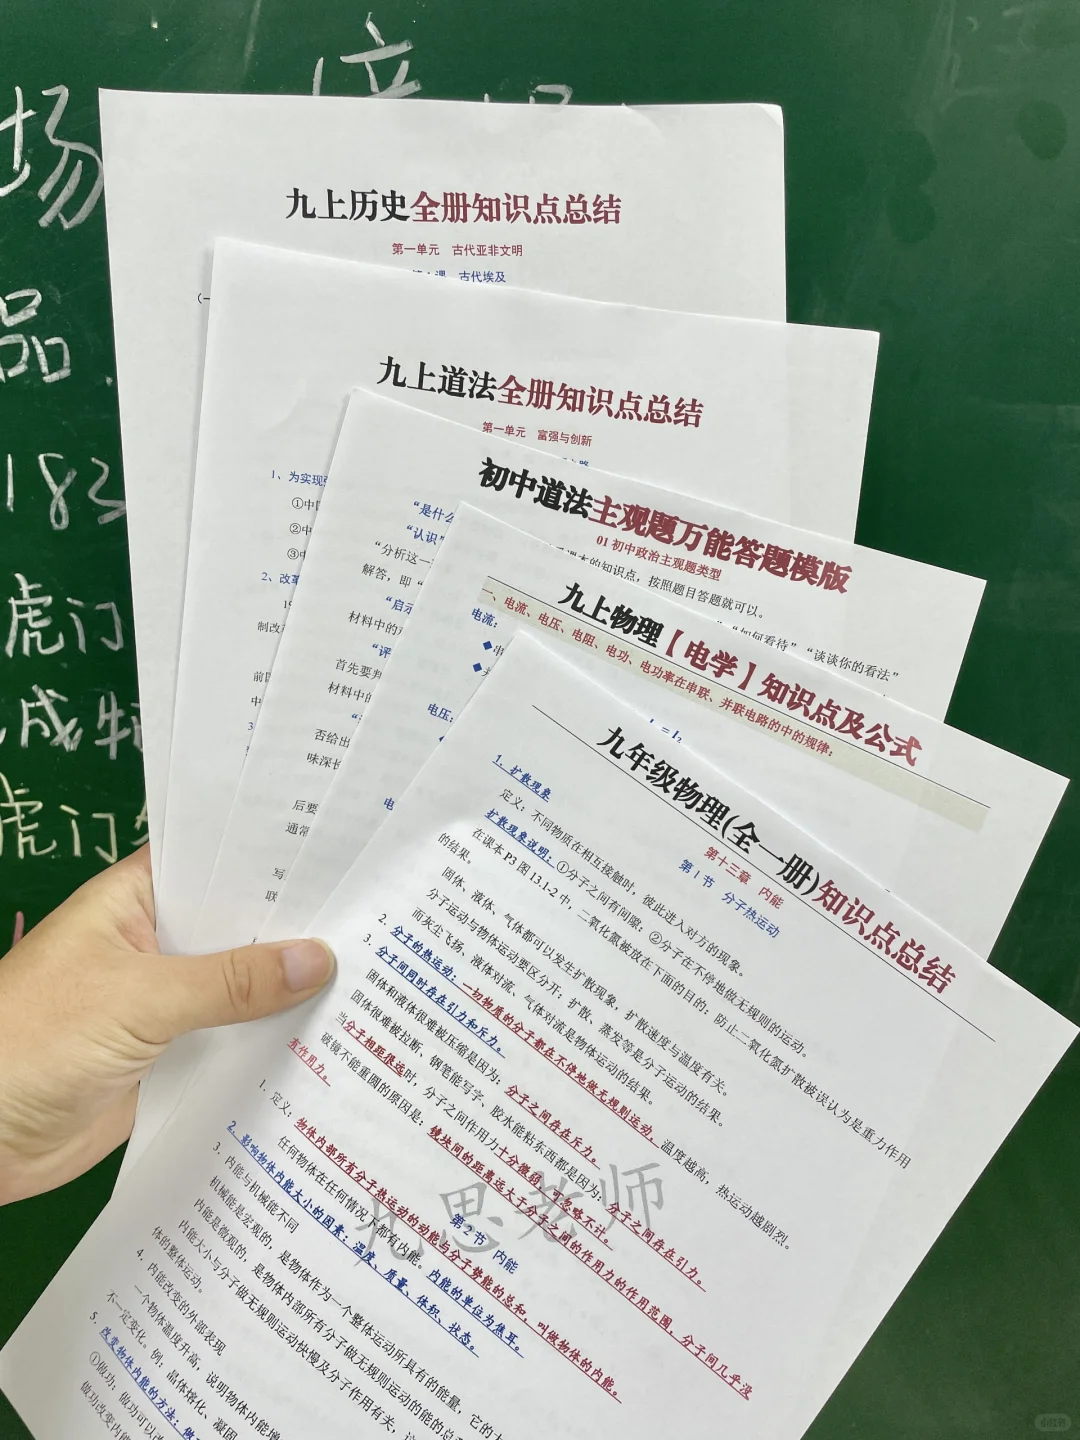 场
品
183
虎门
虎门
九上历史全册知识点总结
第一单元 古代亚非文明
课 古代埃及
九上道法全册知识点总结
第一单元 富强与创新
1、为实现
①中
②中
③中
2、改革
制改
初中道法主观题万能答题模版
01 初中政治主观题类型
课本的知识点，按照题目答题就可以。
“是什么
“认识”
“如何看待”“谈谈你的看法”
“分析这一
解答，即“
“启示
材料中的
“评
首先要判
材料中的
否给出
味深长
后要
通常
九上物理【电学】知识点及公式
一、电流、电压、电阻、电功、电功率在串联、并联电路的中的规律：
电流：
电压：
九年级物理(全一册)知识点总结
第十三章 内能
第1节 分子热运动
1. 扩散现象
定义：不同物质在相互接触时，彼此进入对方的现象。
扩散现象说明：①分子之间有间隙；②分子在不停地做无规则的运动。
在课本P3图13.1-2中，二氧化氮被放在下面的目的：防止二氧化氮扩散被误认为是重力作用
的结果。
固体、液体、气体都可以发生扩散现象，扩散速度与温度有关。
分子运动与物体运动要区分开：扩散、蒸发等是分子运动的结果。
而灰尘飞扬、液体对流、气体对流是物体运动的结果。
2. 分子的热运动：一切物质的分子都在不停地做无规则运动，温度越高，热运动越剧烈。
3. 分子间同时存在引力和斥力。
固体和液体很难被压缩是因为：分子之间存在斥力。
固体很难被拉断、钢笔能写字、胶水能粘东西都是因为：分子之间存在引力。
当分子相距很远时，分子之间作用力十分微弱，可忽略不计。
破镜不能重圆的原因是：镜块间的距离远大于分子之间的作用力的作用范围，分子间几乎没
有作用力。
第2节 内能
1. 定义：物体内部所有分子热运动的动能与分子势能的总和，叫做物体的内能。
任何物体在任何情况下都有内能。内能的单位为焦耳。
2. 影响物体内能大小的因素：温度、质量、体积、状态。
3. 内能与机械能不同
机械能是宏观的，是物体作为一个整体运动所具有的能量，它的大
内能是微观的，是物体内部所有分子做无规则运动的能的总
内能大小与分子做无规则运动快慢及分子作用有关，这
体的整体运动。
4. 内能改变的外部表现
一个物体温度升高，说明物体内能增
不一定变化。例：晶体熔化、凝固
5. 改变物体内能的方法：做
①做功：做功可以改
做功改变内能
九思老师
小红书